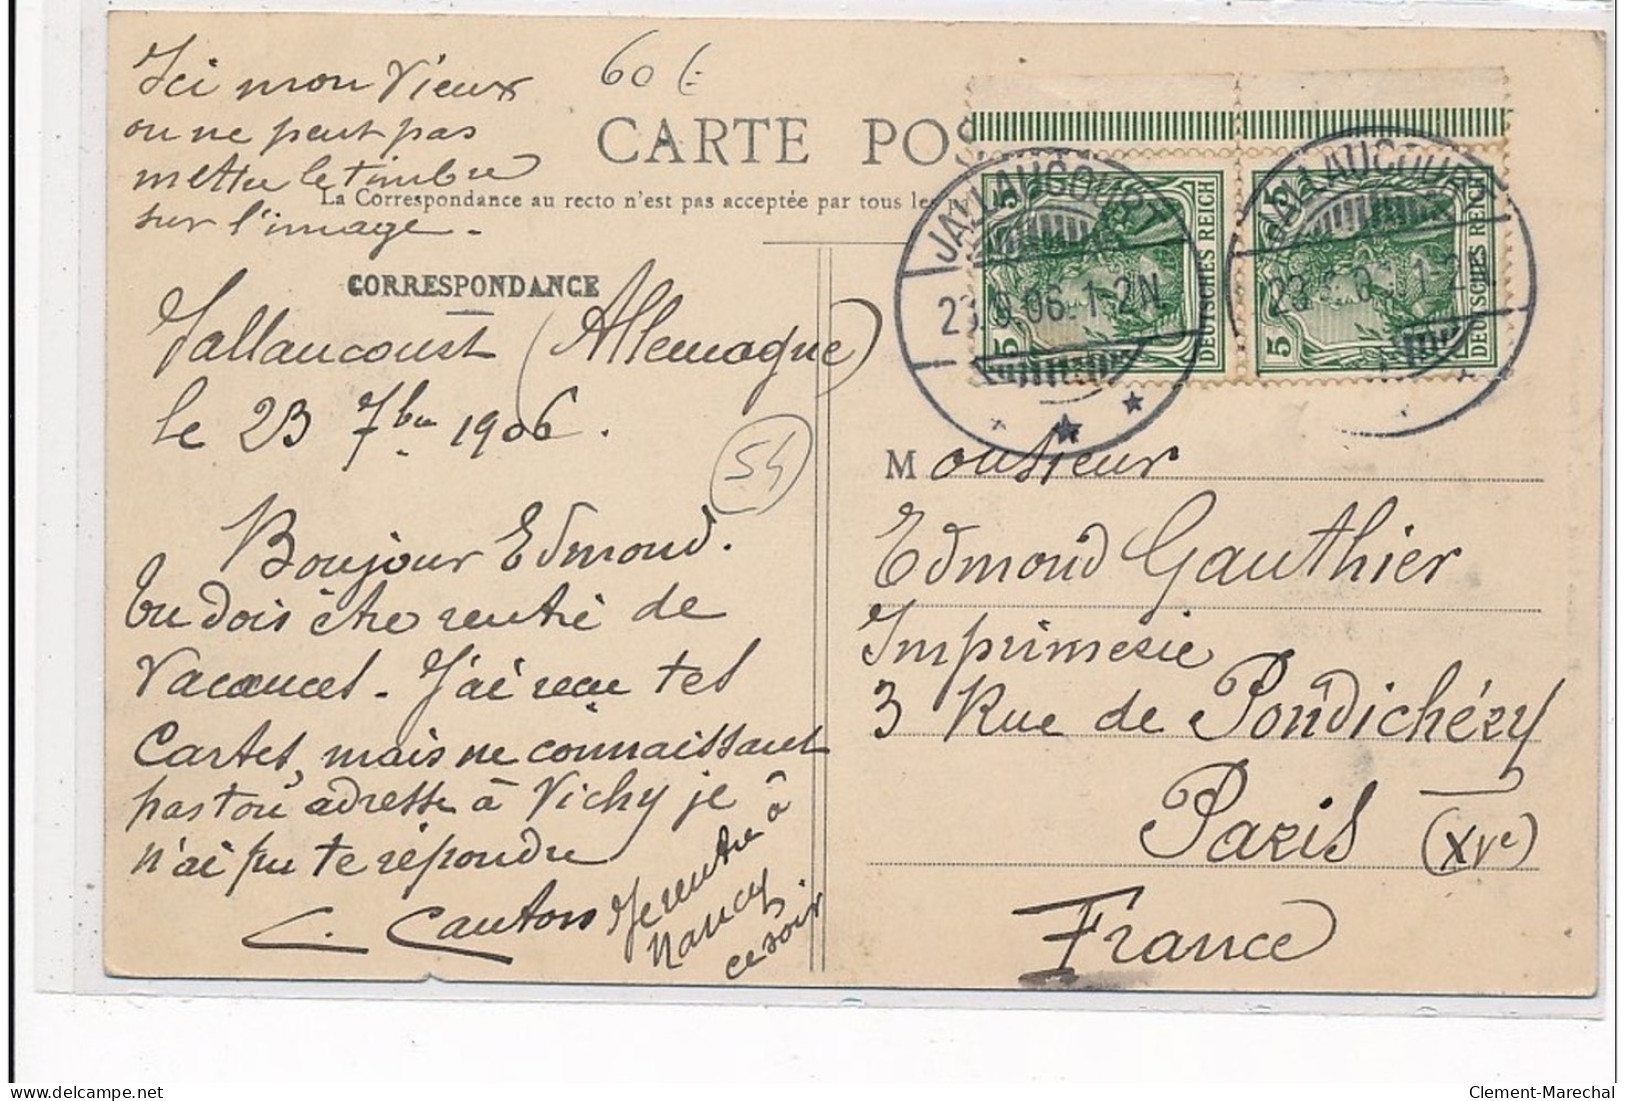 Ici mon Vieux
on ne peut pas
mettre le timbre
sur l'image -
60 f
CARTE POS
La Correspondance au recto n'est pas acceptée par tous les
JALLAUCOURT
23.9.06.1-2N.
5 5
DEUTSCHES REICH
JALLAUCOURT
1-2N.
5
DEUTSCHES REICH
CORRESPONDANCE
Jallaucourt (Allemagne)
le 23 7bre 1906.
54
Bonjour Edmond.
Tu dois être rentré de
Vacances - J'ai reçu tes
Cartes, mais ne connaissant
pas ton adresse à Vichy je
n'ai pu te répondre
Je rentre à
Nancy
ce soir
Monsieur
Edmond Gauthier
Imprimerie
3 Rue de Pondichéry
Paris (XVe)
France
Clement-Marechal